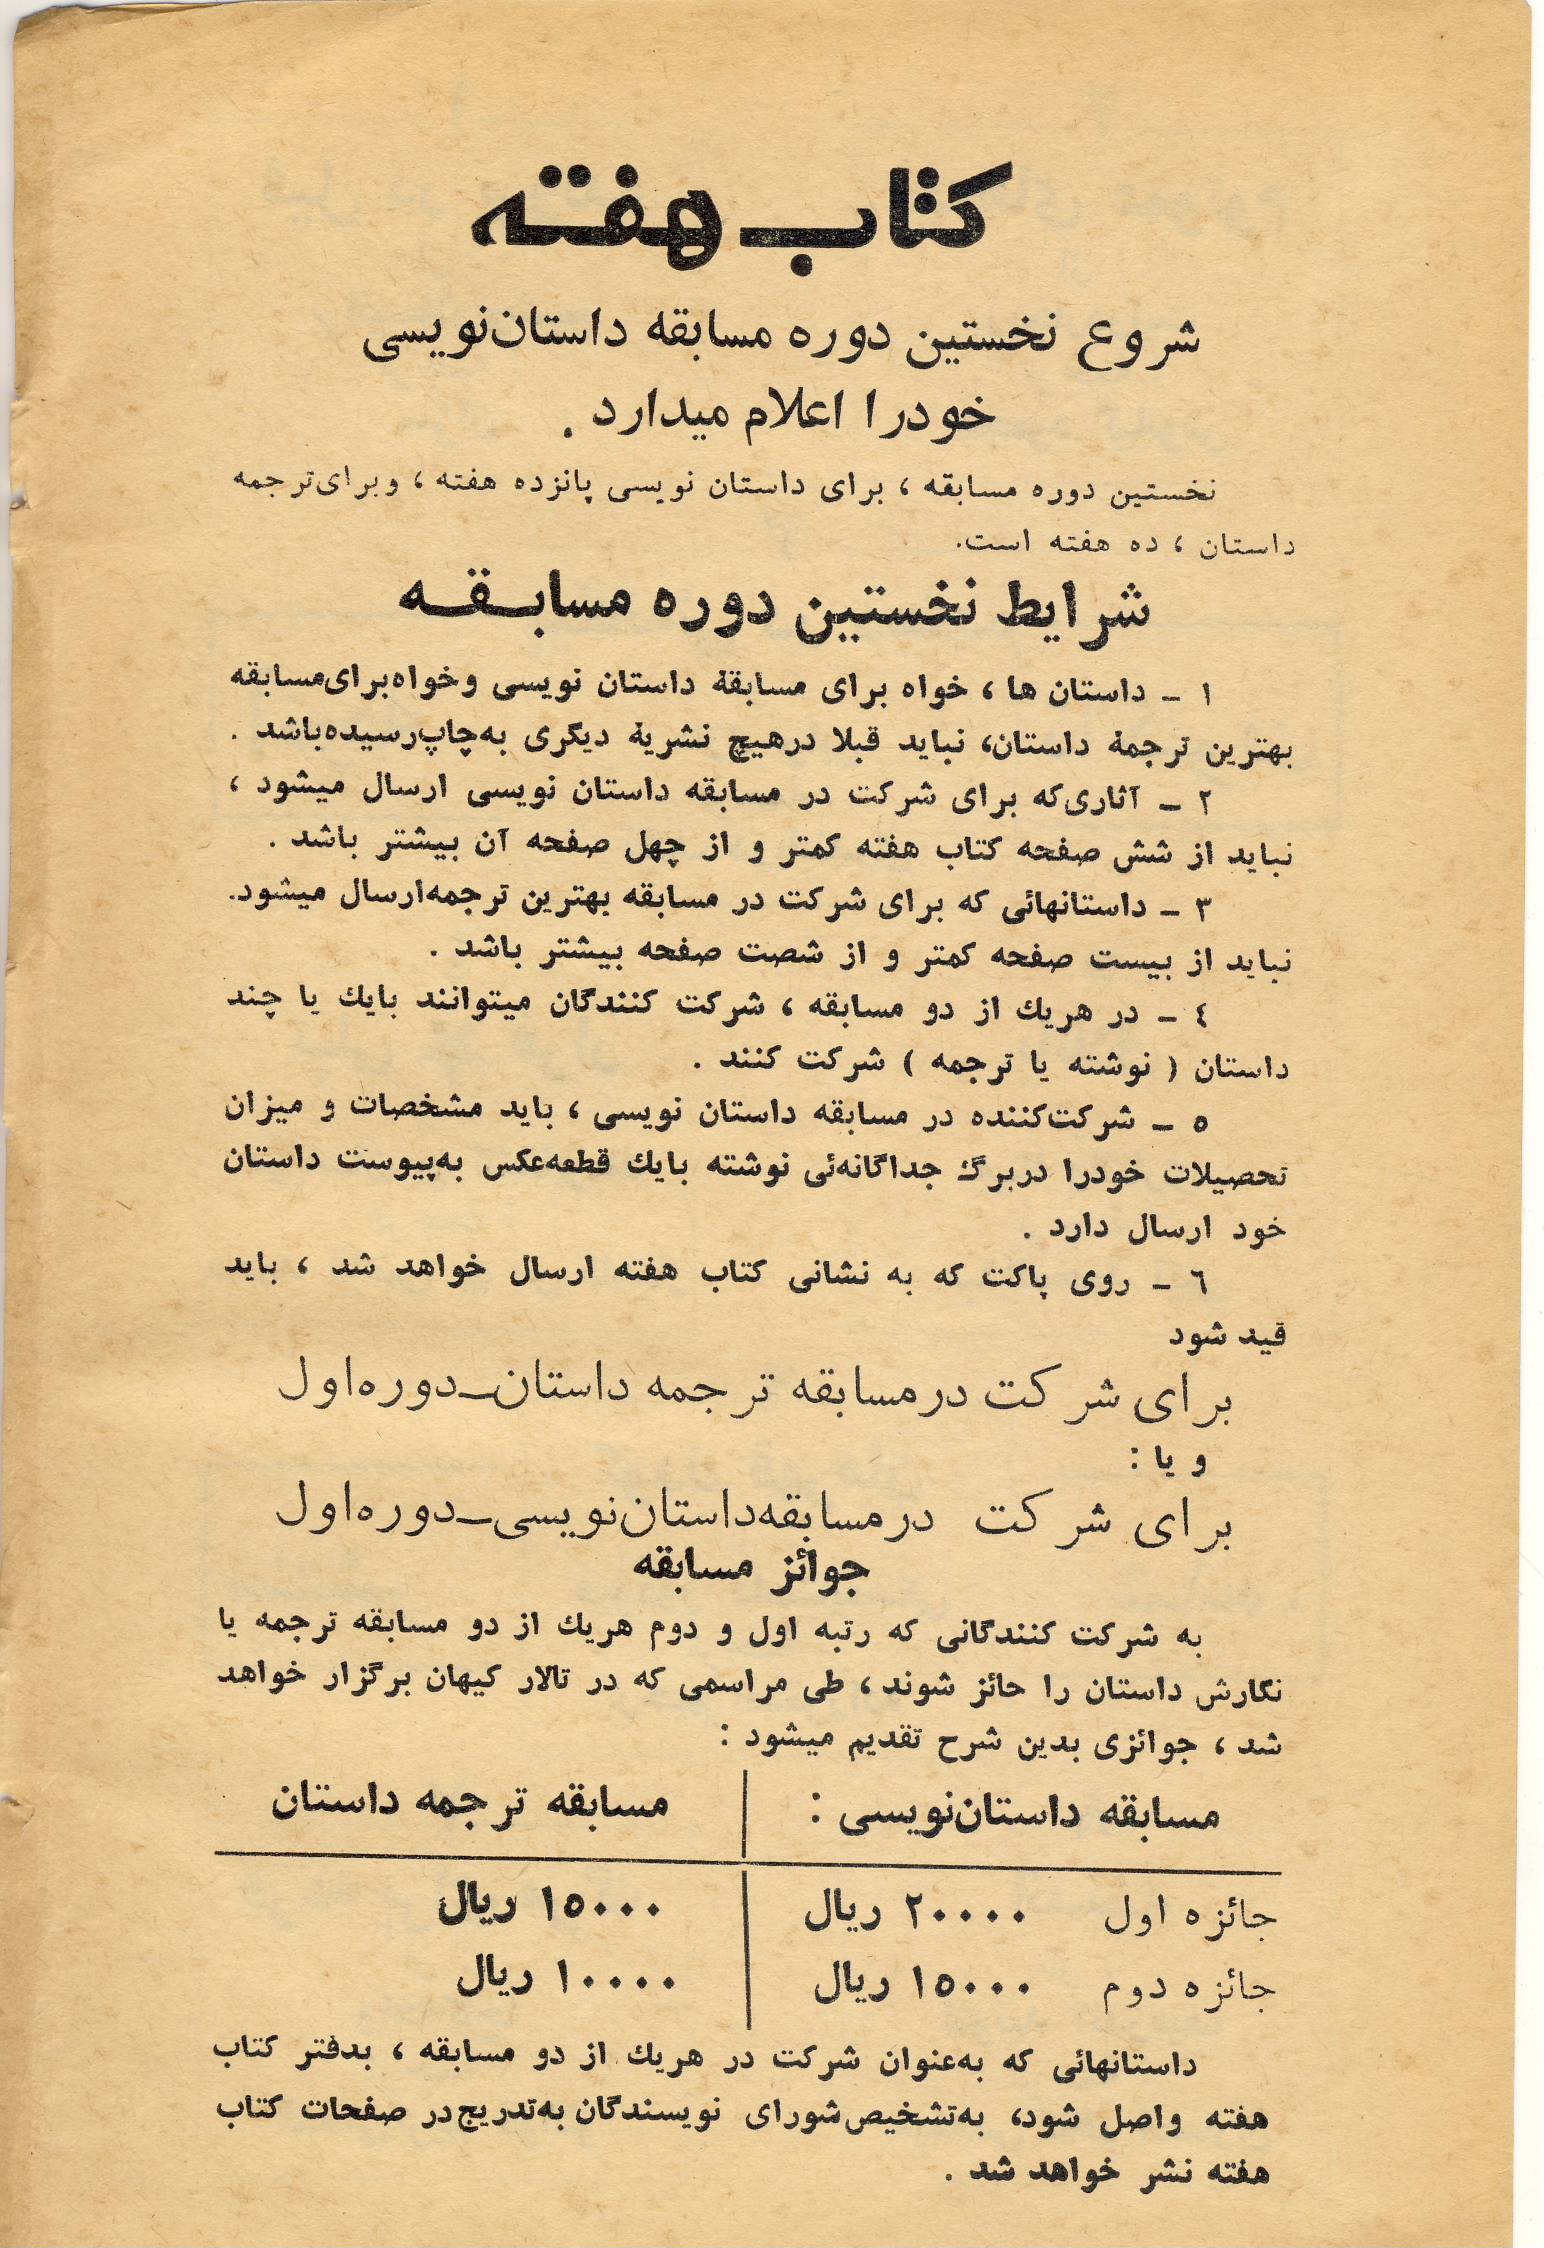 کتاب هفته
شروع نخستین دوره مسابقه داستان‌نویسی
خودرا اعلام میدارد .
نخستین دوره مسابقه ، برای داستان نویسی پانزده هفته ، وبرای‌ترجمه
داستان ، ده هفته است.
شرایط نخستین دوره مسابقه
۱ - داستان ها ، خواه برای مسابقهٔ داستان نویسی وخواه‌برای‌مسابقه
بهترین ترجمهٔ داستان، نباید قبلا درهیچ نشریهٔ دیگری به‌چاپ‌رسیده‌باشد .
۲ - آثاری‌که برای شرکت در مسابقه داستان نویسی ارسال میشود ،
نباید از شش صفحه کتاب هفته کمتر و از چهل صفحه آن بیشتر باشد .
۳ - داستانهائی که برای شرکت در مسابقه بهترین ترجمه‌ارسال میشود.
نباید از بیست صفحه کمتر و از شصت صفحه بیشتر باشد .
٤ - در هریك از دو مسابقه ، شرکت کنندگان میتوانند بایك یا چند
داستان ( نوشته یا ترجمه ) شرکت کنند .
۵ - شرکت‌کننده در مسابقه داستان نویسی ، باید مشخصات و میزان
تحصیلات خودرا دربرگ جداگانه‌ئی نوشته بایك قطعه‌عکس به‌پیوست داستان
خود ارسال دارد .
٦ - روی پاکت که به نشانی کتاب هفته ارسال خواهد شد ، باید
قید شود
برای شرکت درمسابقه ترجمه داستان-دوره‌اول
و یا :
برای شرکت درمسابقه‌داستان‌نویسی-دوره‌اول
جوائز مسابقه
به شرکت کنندگانی که رتبه اول و دوم هریك از دو مسابقه ترجمه یا
نگارش داستان را حائز شوند ، طی مراسمی که در تالار کیهان برگزار خواهد
شد ، جوائزی بدین شرح تقدیم میشود :
مسابقه داستان‌نویسی : مسابقه ترجمه داستان
جائزه اول ۲۰۰۰۰ ریال ۱۵۰۰۰ ریال
جائزه دوم ۱۵۰۰۰ ریال ۱۰۰۰۰ ریال
داستانهائی که به‌عنوان شرکت در هریك از دو مسابقه ، بدفتر کتاب
هفته واصل شود، به‌تشخیص‌شورای نویسندگان به‌تدریج‌در صفحات کتاب
هفته نشر خواهد شد .